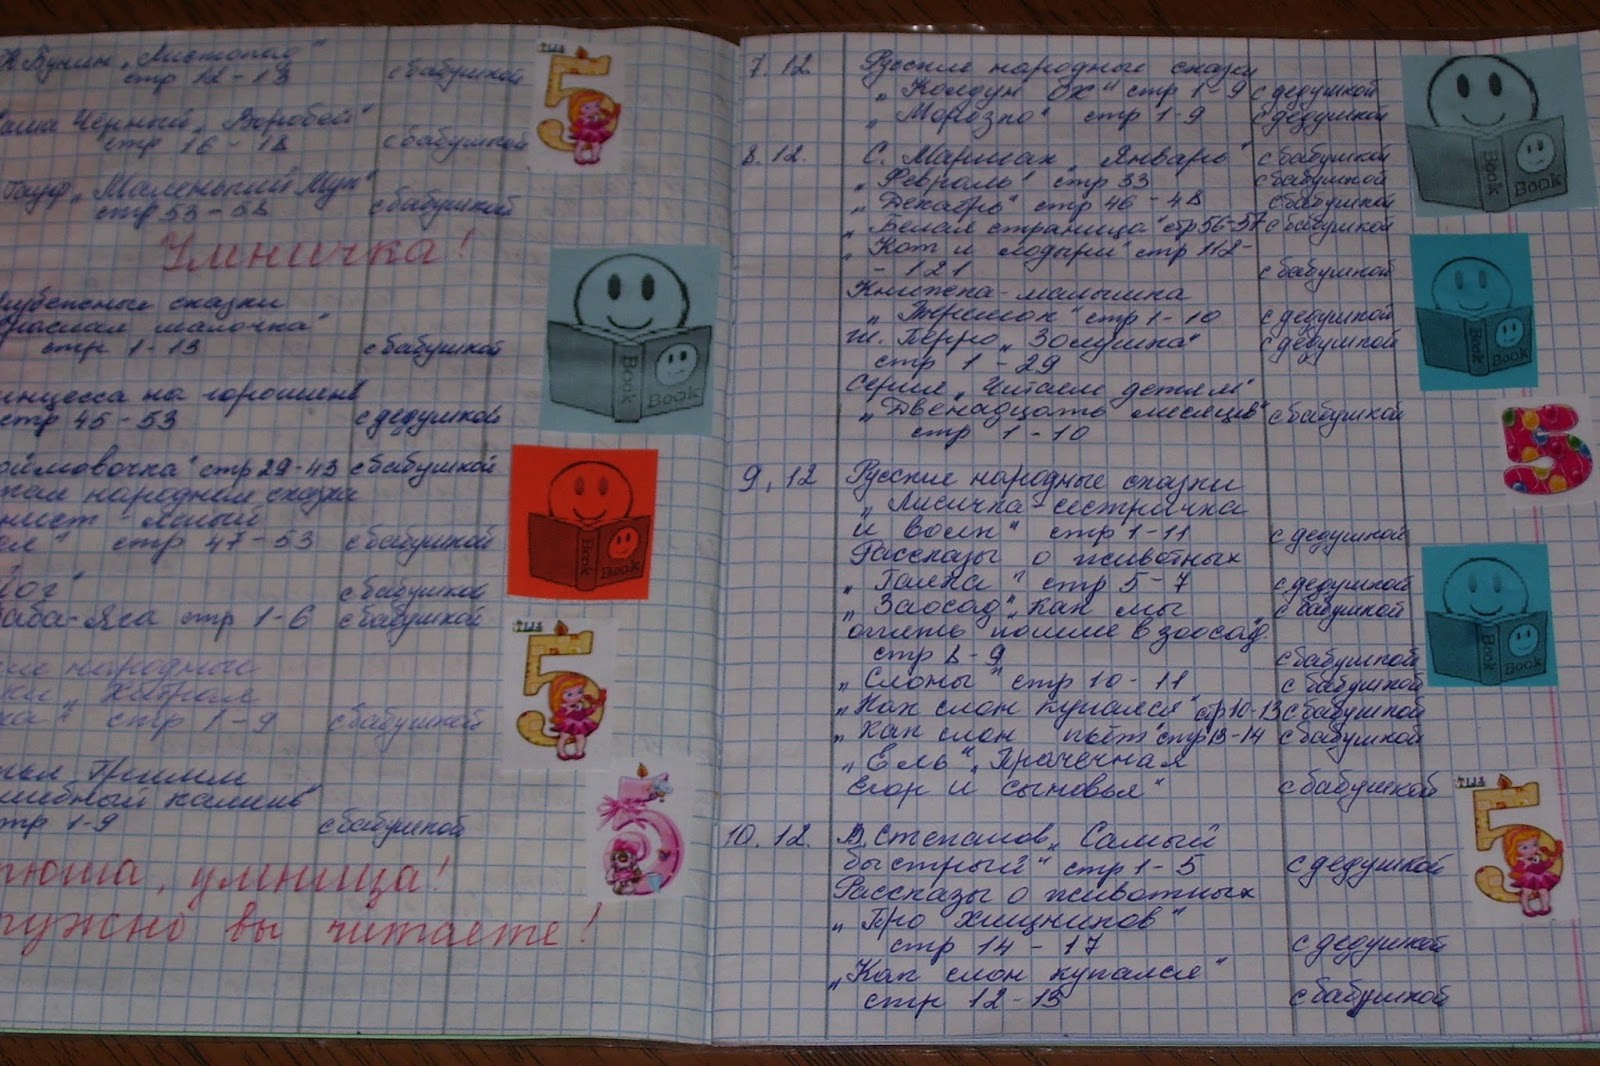 Бунин „Листопад"
стр 12-13 с бабушкой
Саша Чёрный „Воробей"
стр 16-18 с бабушкой
Гауф „Маленький Мук"
стр 53-58 с бабушкой
Умничка!
сказки
палочка"
стр 1-13 с бабушкой
инцесса на горошине
стр 45-53 с дедушкой
оймовочка" стр 29-43 с бабушкой
народная сказка
ясный
стр 47-53 с бабушкой
с бабушкой
аба-Яга стр 1-6 с бабушкой
ие народные
ки „Хитрая
ка" стр 1-9 с бабушкой
Гримм
шебный камень"
тр 1-9 с бабушкой
тюша, умница!
ружно вы читаете!
5
Book Book
Book Book
5
5
7.12 Русские народные сказки
„Колдун Ох" стр 1-9 с дедушкой
„Морозко" стр 1-9 с дедушкой
8.12. С. Маршак „Январь" с бабушкой
„Февраль" стр 33 с бабушкой
„Декабрь" стр 46-48 с бабушкой
„Белая страница" стр 56-57 с бабушкой
„Кот и лодыри" стр 118-
- 121 с бабушкой
Книжка-малышка
„Теремок" стр 1-10 с дедушкой
Ш. Перро „Золушка" с дедушкой
стр 1-29
Серия „Читаем детям"
„Двенадцать месяцев" с бабушкой
стр 1-10
9.12 Русские народные сказки
„Лисичка-сестричка
и волк" стр 1-11 с дедушкой
Рассказы о животных
„Галка" стр 5-7 с дедушкой
„Заосад", как мы с бабушкой
опять пошли в зоосад
стр 8-9 с бабушкой
„Слоны" стр 10-11 с бабушкой
„Как слон купался" стр 10-13 с бабушкой
„Как слон пьёт" стр 13-14 с бабушкой
„Ель", „Прачечная
Егор и сыновья" с бабушкой
10.12. В. Степанов „Самый
быстрый" стр 1-5 с дедушкой
Рассказы о животных
„Про хищников"
стр 14-17 с дедушкой
„Как слон купался"
стр 12-13 с бабушкой
Book Book
Book Book
5
Book Book
5